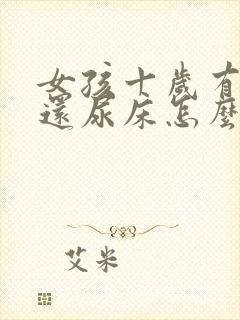 女孩十歲有
還尿床怎麼
艾米